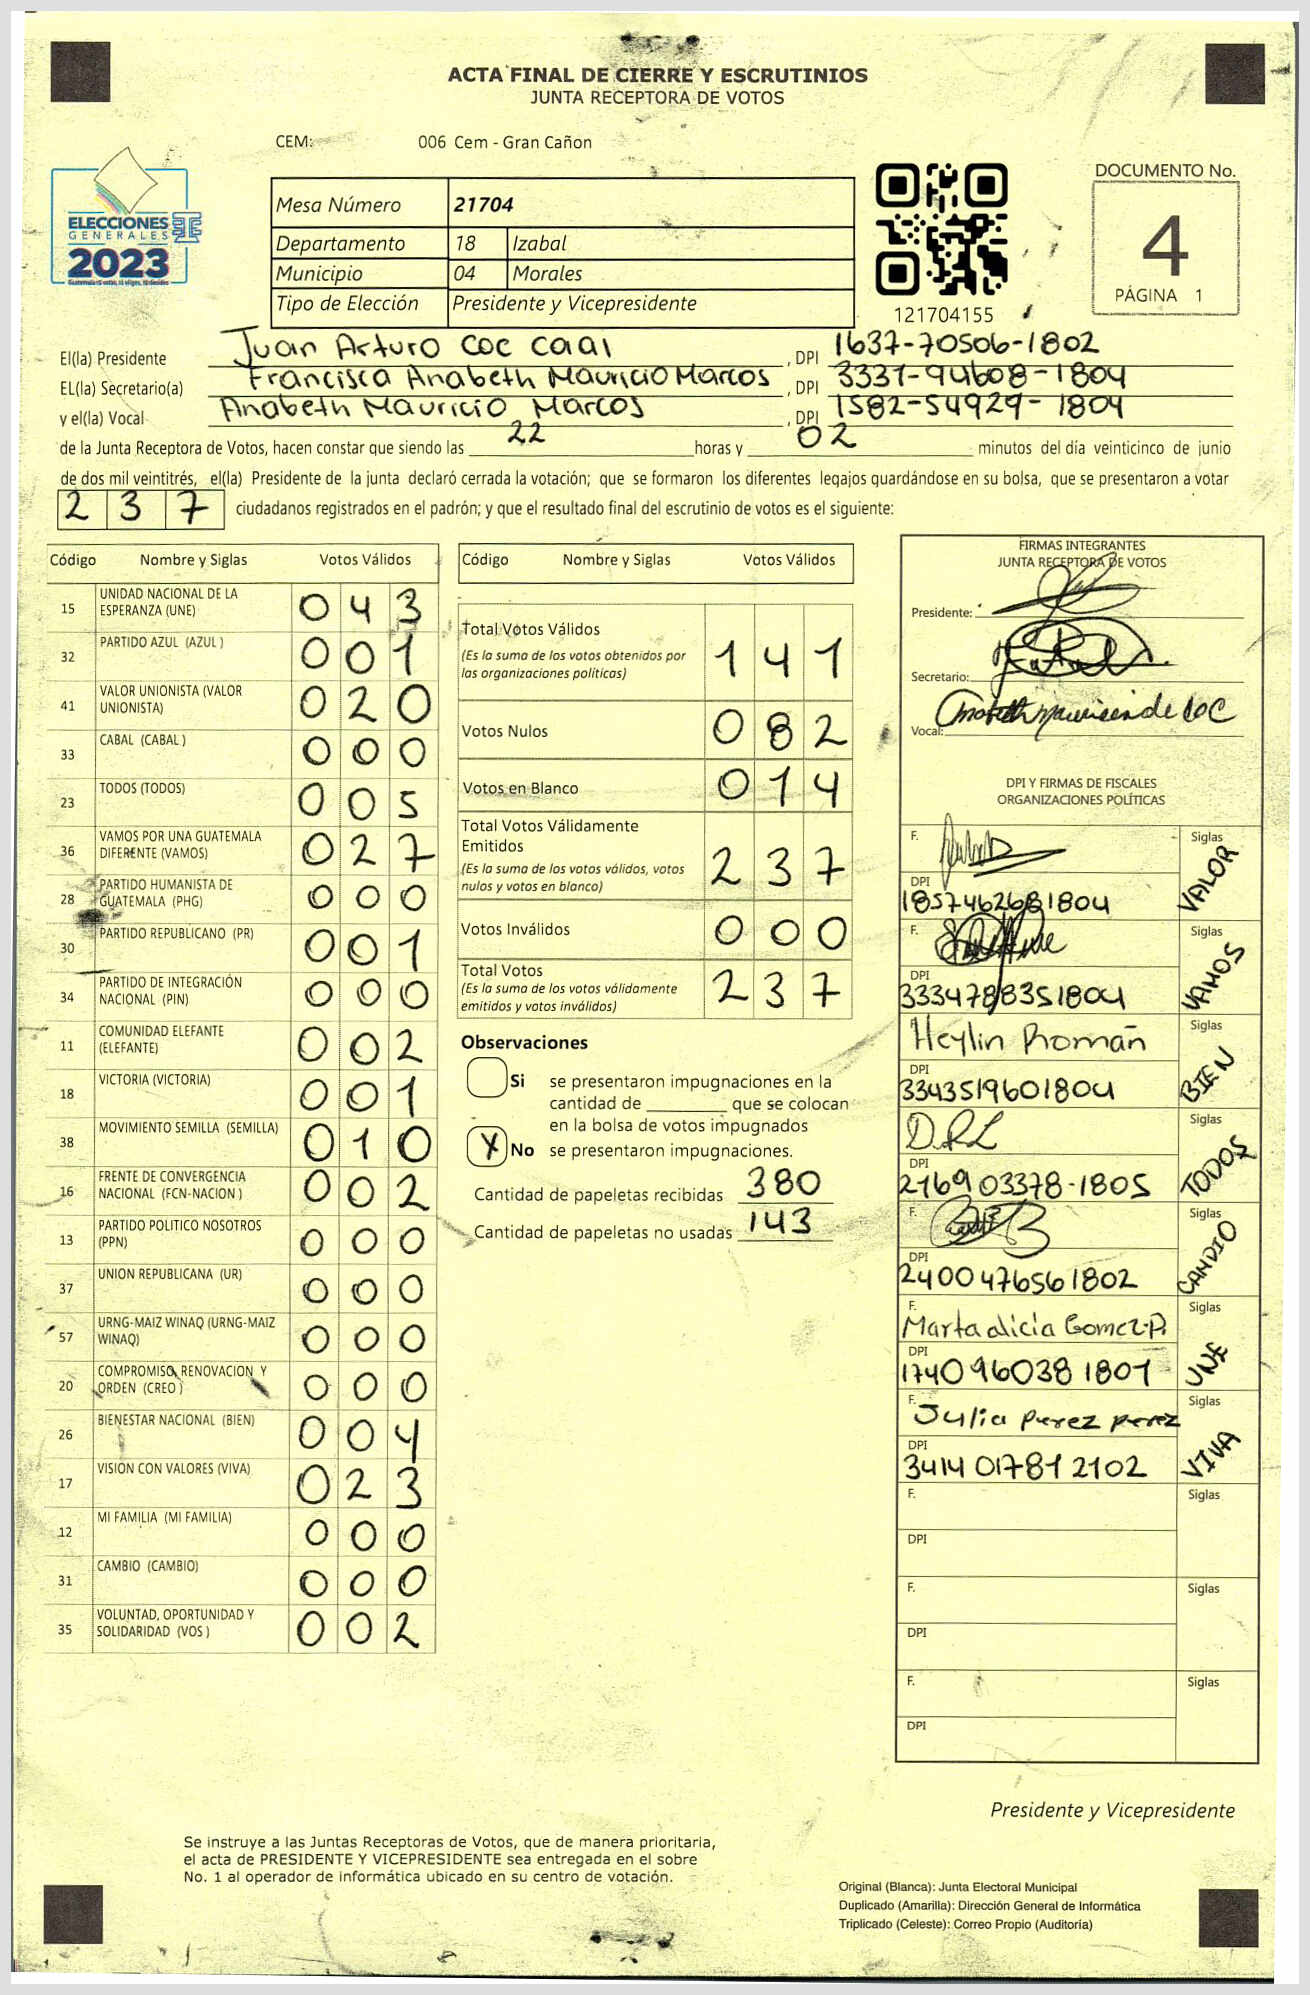 ACTA FINAL DE CIERRE Y ESCRUTINIOS
JUNTA RECEPTORA DE VOTOS
CEM: 006 Cem - Gran Cañon
ELECCIONES
GENERALES
2023
Mesa Número 21704
Departamento 18 Izabal
Municipio 04 Morales
Tipo de Elección Presidente y Vicepresidente
121704155
DOCUMENTO No.
4
PÁGINA 1
El(la) Presidente Juan Arturo Coc Caal, DPI 1637-70506-1802
EL(la) Secretario(a) Francisca Anabeth Mauricio Marcos, DPI 3331-94608-1804
y el(la) Vocal Anabeth Mauricio Marcos, DPI 1582-54929-1804
de la Junta Receptora de Votos, hacen constar que siendo las 22 horas y 02 minutos del día veinticinco de junio
de dos mil veintitrés, el(la) Presidente de la junta declaró cerrada la votación; que se formaron los diferentes legajos guardándose en su bolsa, que se presentaron a votar
237 ciudadanos registrados en el padrón; y que el resultado final del escrutinio de votos es el siguiente:
Código Nombre y Siglas Votos Válidos
15 UNIDAD NACIONAL DE LA ESPERANZA (UNE) 043
32 PARTIDO AZUL (AZUL ) 001
41 VALOR UNIONISTA (VALOR UNIONISTA) 020
33 CABAL (CABAL ) 000
23 TODOS (TODOS) 005
36 VAMOS POR UNA GUATEMALA DIFERENTE (VAMOS) 027
28 PARTIDO HUMANISTA DE GUATEMALA (PHG) 000
30 PARTIDO REPUBLICANO (PR) 001
34 PARTIDO DE INTEGRACIÓN NACIONAL (PIN) 000
11 COMUNIDAD ELEFANTE (ELEFANTE) 002
18 VICTORIA (VICTORIA) 001
38 MOVIMIENTO SEMILLA (SEMILLA) 010
16 FRENTE DE CONVERGENCIA NACIONAL (FCN-NACION ) 002
13 PARTIDO POLITICO NOSOTROS (PPN) 000
37 UNION REPUBLICANA (UR) 000
57 URNG-MAIZ WINAQ (URNG-MAIZ WINAQ) 000
20 COMPROMISO, RENOVACION Y ORDEN (CREO ) 000
26 BIENESTAR NACIONAL (BIEN) 004
17 VISION CON VALORES (VIVA) 023
12 MI FAMILIA (MI FAMILIA) 000
31 CAMBIO (CAMBIO) 000
35 VOLUNTAD, OPORTUNIDAD Y SOLIDARIDAD (VOS ) 002
Código Nombre y Siglas Votos Válidos
Total Votos Válidos 141
(Es la suma de los votos obtenidos por
las organizaciones políticas)
Votos Nulos 082
Votos en Blanco 014
Total Votos Válidamente
Emitidos 237
(Es la suma de los votos válidos, votos
nulos y votos en blanco)
Votos Inválidos 000
Total Votos 237
(Es la suma de los votos válidamente
emitidos y votos inválidos)
Observaciones
Si se presentaron impugnaciones en la
cantidad de ________ que se colocan
en la bolsa de votos impugnados
X No se presentaron impugnaciones.
Cantidad de papeletas recibidas 380
Cantidad de papeletas no usadas 143
FIRMAS INTEGRANTES
JUNTA RECEPTORA DE VOTOS
Presidente:
Secretario:
Vocal:
DPI Y FIRMAS DE FISCALES
ORGANIZACIONES POLÍTICAS
F. Siglas VALOR
DPI 1857462681804
F. Siglas VAMOS
DPI 3334788351804
F. Heylin Román Siglas BIEN
DPI 3343519601804
D.R.L Siglas TODOS
DPI 216903378-1805
F. Siglas
DPI 2400476561802
F. Marta alicia Gomez.P. Siglas UNE
DPI 1740960381801
F. Julia perez perez Siglas VIVA
DPI 3414017812102
F. Siglas
DPI
F. Siglas
DPI
F. Siglas
DPI
Presidente y Vicepresidente
Se instruye a las Juntas Receptoras de Votos, que de manera prioritaria,
el acta de PRESIDENTE Y VICEPRESIDENTE sea entregada en el sobre
No. 1 al operador de informática ubicado en su centro de votación.
Original (Blanca): Junta Electoral Municipal
Duplicado (Amarilla): Dirección General de Informática
Triplicado (Celeste): Correo Propio (Auditoría)